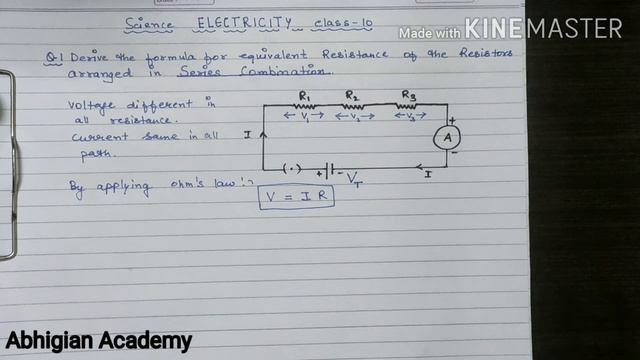 Science ELECTRICITY class-10
Made with KINEMASTER
Q.1 Derive the formula for equivalent Resistance of the Resistors
arranged in Series Combination.
Voltage different in
all resistance.
Current same in all
path.
R1 R2 R3
V1 V2 V3
I
+
A
-
(·)
+ -
VT
I
By applying ohm's law :-
V = I R
Abhigian Academy